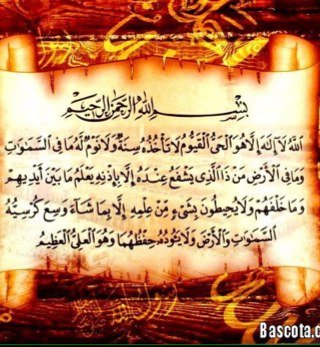 بِسْمِ اللهِ الرَّحْمَنِ الرَّحِيمِ
اللهُ لَا إِلَهَ إِلَّا هُوَ الْحَيُّ الْقَيُّومُ لَا تَأْخُذُهُ سِنَةٌ وَلَا نَوْمٌ لَهُ مَا فِي السَّمَوَاتِ
وَمَا فِي الْأَرْضِ مَنْ ذَا الَّذِي يَشْفَعُ عِنْدَهُ إِلَّا بِإِذْنِهِ يَعْلَمُ مَا بَيْنَ أَيْدِيهِمْ
وَمَا خَلْفَهُمْ وَلَا يُحِيطُونَ بِشَيْءٍ مِنْ عِلْمِهِ إِلَّا بِمَا شَاءَ وَسِعَ كُرْسِيُّهُ
السَّمَوَاتِ وَالْأَرْضَ وَلَا يَئُودُهُ حِفْظُهُمَا وَهُوَ الْعَلِيُّ الْعَظِيمُ
Bascota.c